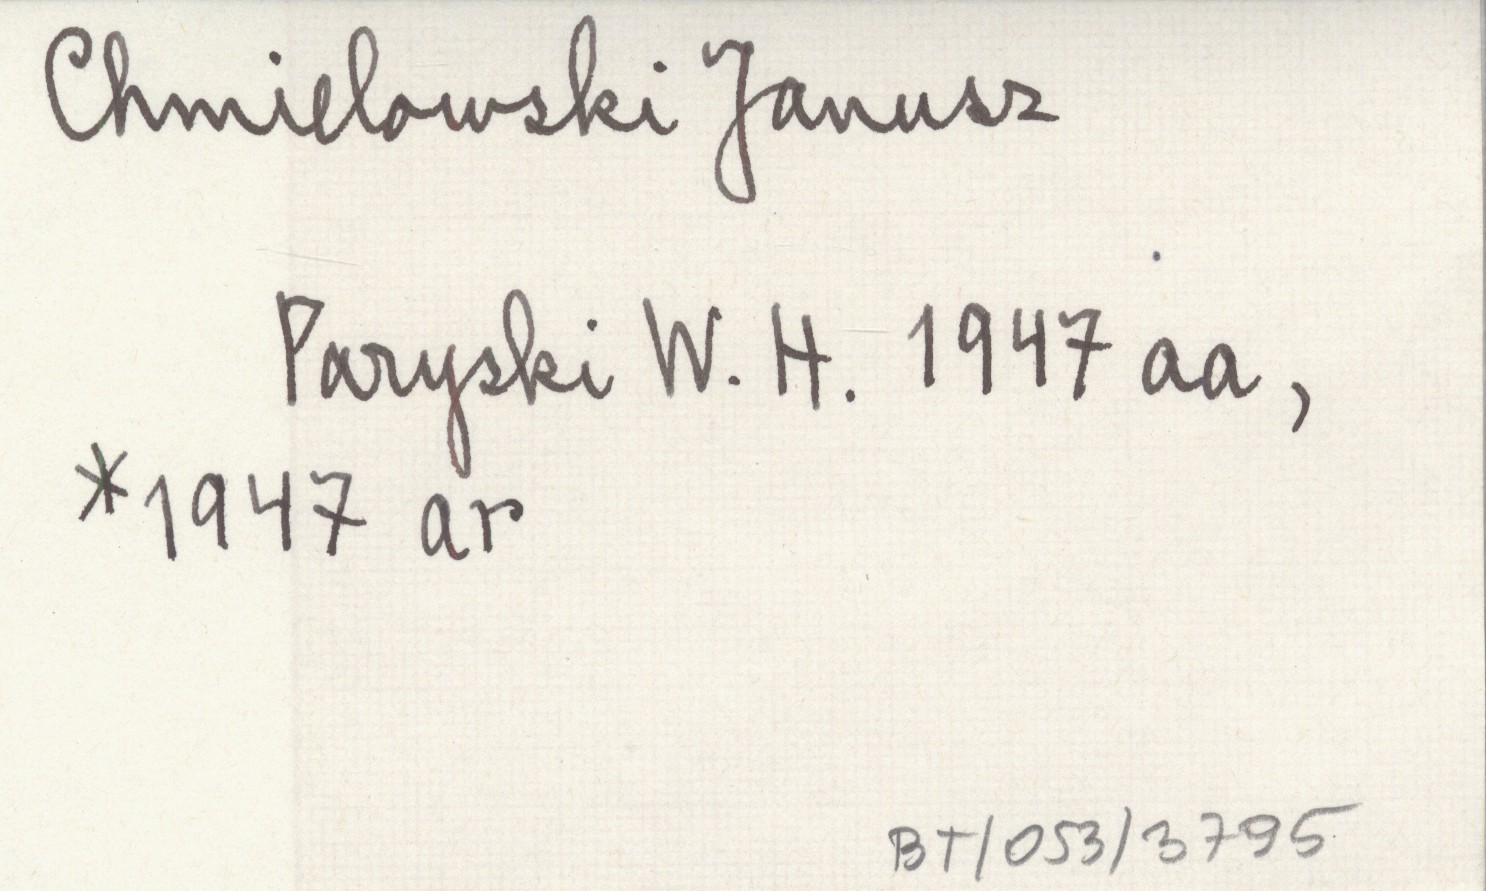 Chmielowski Janusz
Paryski W. H. 1947 aa,
*1947 ar
BT/053/3795